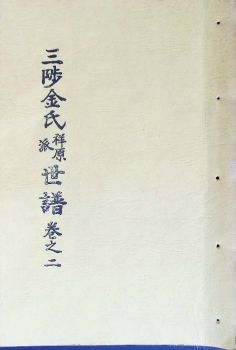 三陟金氏祥原派世譜 卷之二